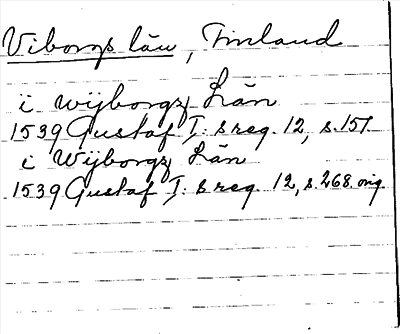 Viborgs län, Finland
i wijborgz Län
1539 Gustaf I: s reg. 12, s. 151.
i Wijborgz Län
1539 Gustaf I: s reg. 12, s. 268. orig.